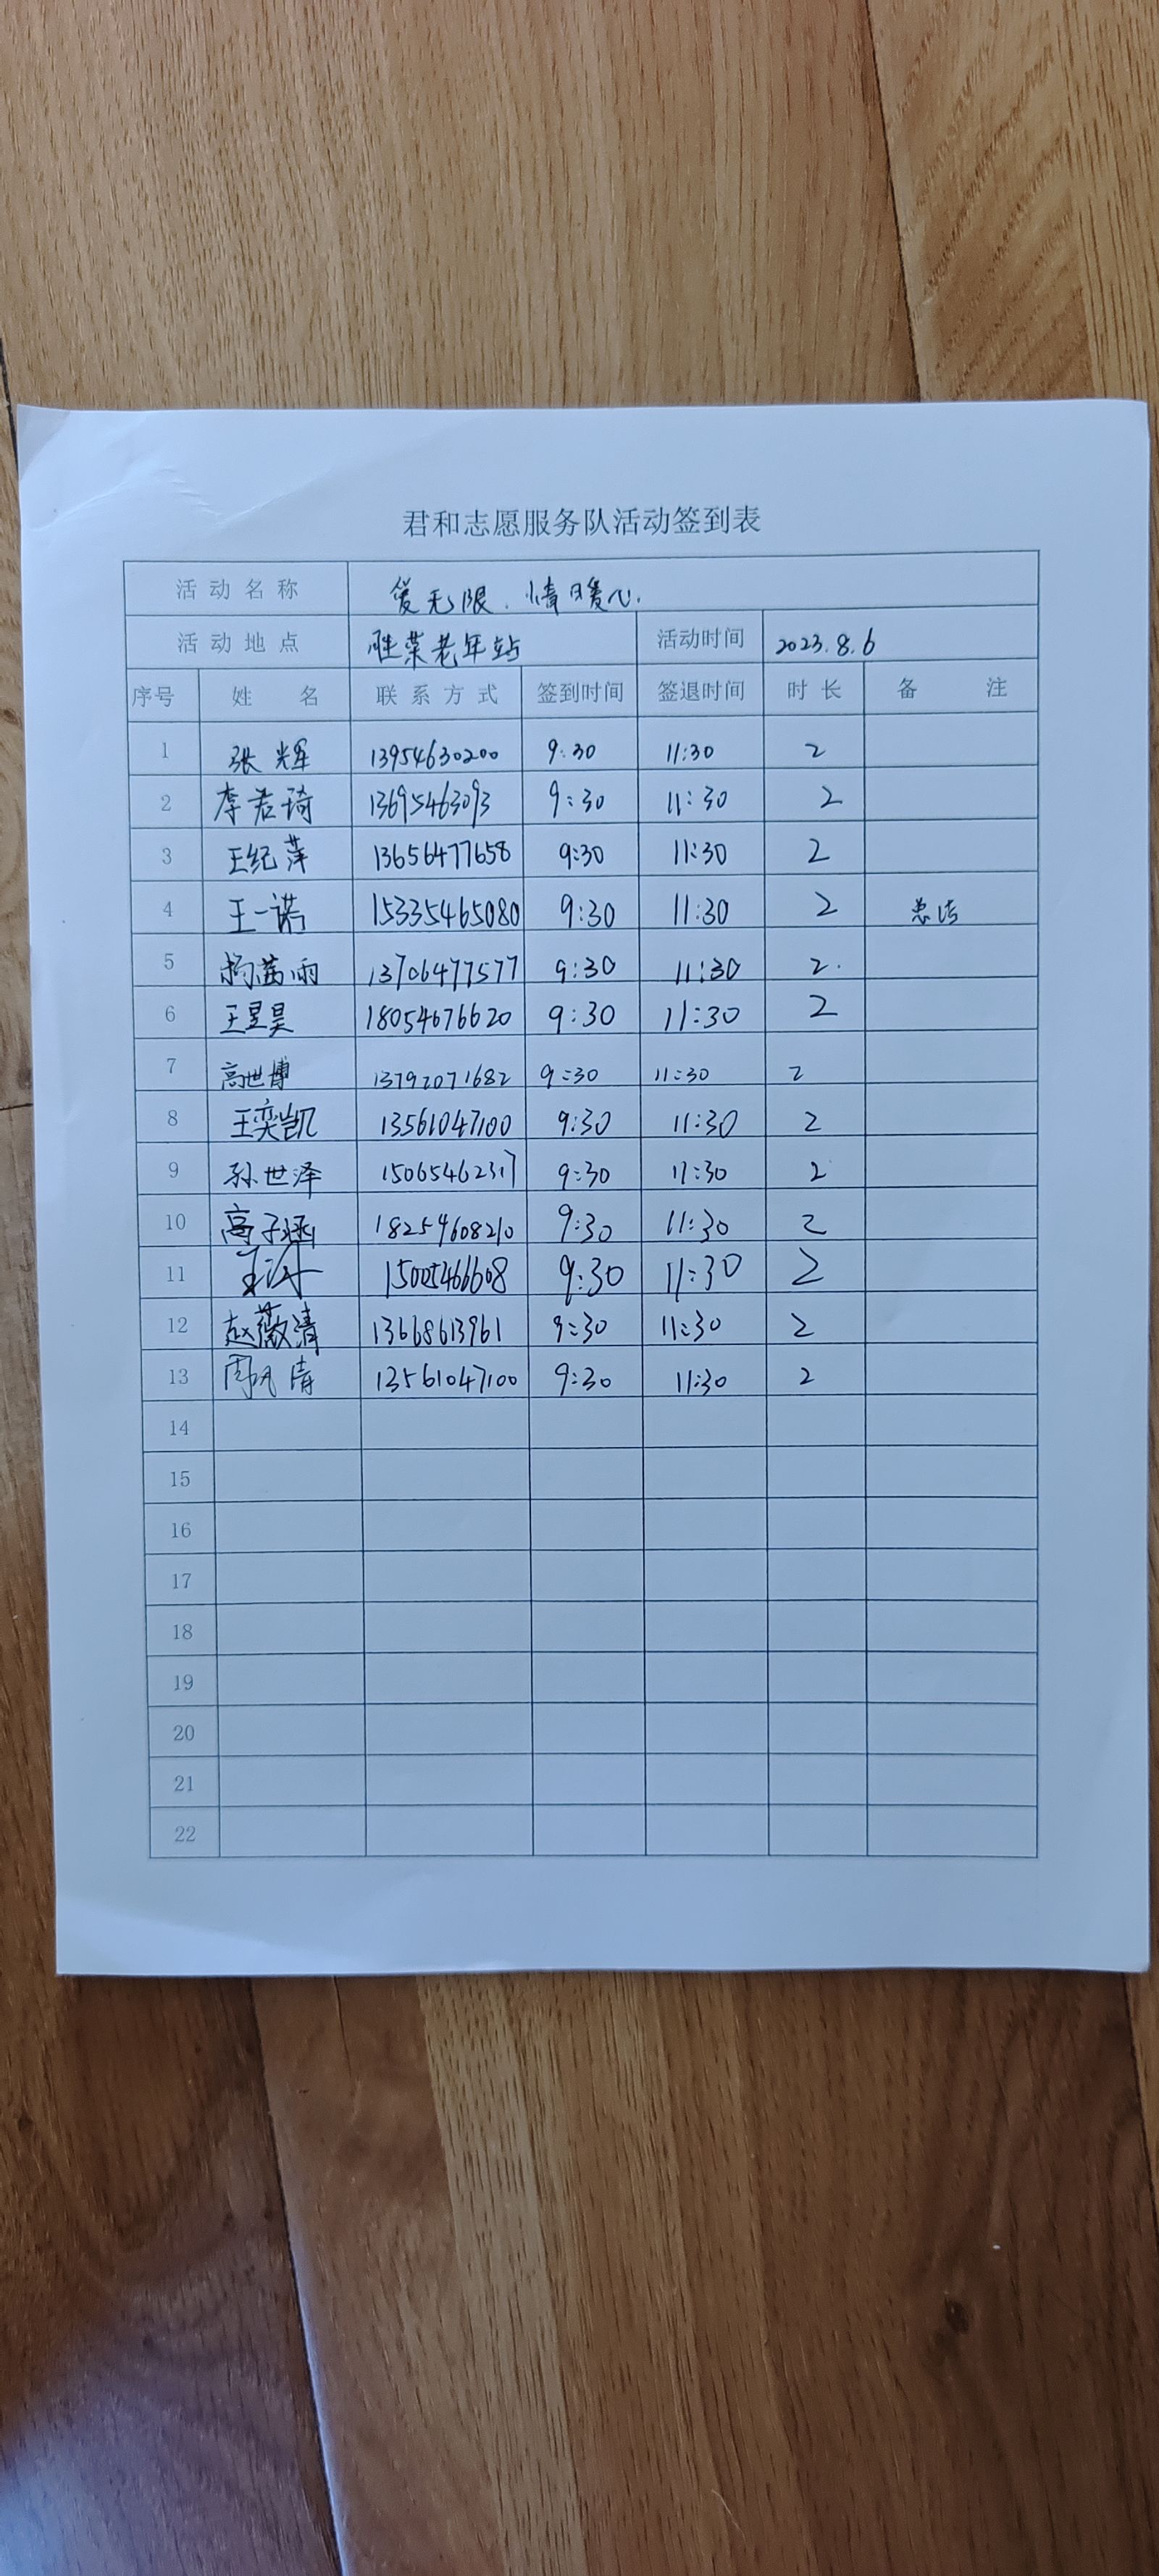 君和志愿服务队活动签到表
活动名称 爱无限.情暖心.
活动地点 胜荣老年站 活动时间 2023.8.6
序号 姓名 联系方式 签到时间 签退时间 时长 备注
1 张辉 13954630200 9:30 11:30 2
2 李若琦 13695463093 9:30 11:30 2
3 王纪萍 13656477658 9:30 11:30 2
4 王一诺 15335465080 9:30 11:30 2
5 杨茜雨 13706477577 9:30 11:30 2.
6 王昱昊 18054676620 9:30 11:30 2
7 高世博 13792071682 9:30 11:30 2
8 王奕凯 13561047100 9:30 11:30 2
9 孙世泽 15065462317 9:30 11:30 2
10 高子涵 18254608210 9:30 11:30 2
11 15005466608 9:30 11:30 2
12 赵薇清 13668613961 9:30 11:30 2
13 13561047100 9:30 11:30 2
14
15
16
17
18
19
20
21
22